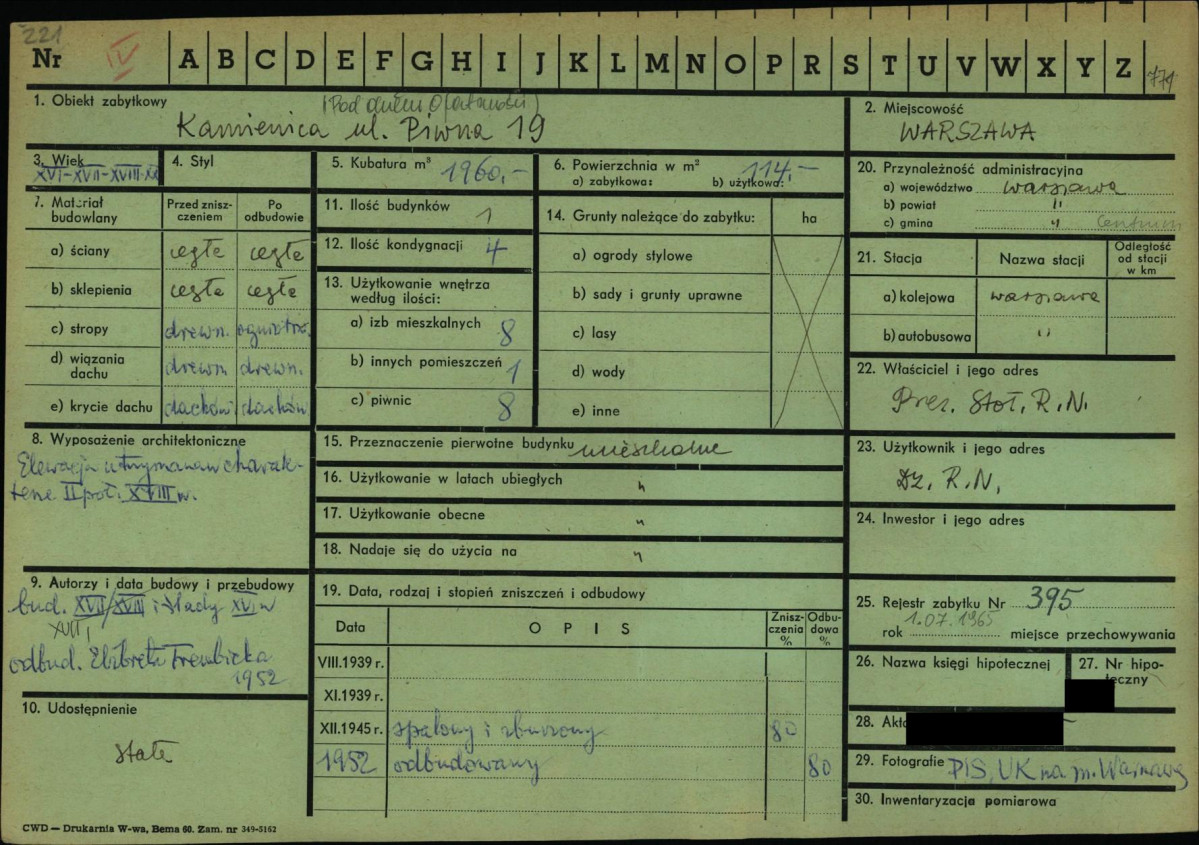 221
Nr IV A B C D E F G H I J K L M N O P R S T U V W X Y Z 771
1. Obiekt zabytkowy
Kamienica ul. Piwna 19
2. Miejscowość
WARSZAWA
3. Wiek
XVI-XVII-XVIII-XX
4. Styl
5. Kubatura m³ 1960,-
6. Powierzchnia w m² 114,-
a) zabytkowa: b) użytkowa:
20. Przynależność administracyjna
a) województwo warszawa
b) powiat "
c) gmina " Centrum
7. Materiał budowlany
Przed zniszczeniem
Po odbudowie
a) ściany cegła cegła
b) sklepienia cegła cegła
c) stropy drewn. ogniotrw.
d) wiązania dachu drewn. drewn.
e) krycie dachu dachów. dachów.
11. Ilość budynków 1
12. Ilość kondygnacji 4
13. Użytkowanie wnętrza
według ilości:
a) izb mieszkalnych 8
b) innych pomieszczeń 1
c) piwnic 8
14. Grunty należące do zabytku: ha
a) ogrody stylowe
b) sady i grunty uprawne
c) lasy
d) wody
e) inne
21. Stacja Nazwa stacji Odległość od stacji w km
a) kolejowa warszawa
b) autobusowa "
22. Właściciel i jego adres
Prez. Stoł. R.N.
8. Wyposażenie architektoniczne
Elewacja utrzymana w charak-
terze II poł. XVIII w.
15. Przeznaczenie pierwotne budynku mieszkalne
16. Użytkowanie w latach ubiegłych "
17. Użytkowanie obecne "
18. Nadaje się do użycia na "
23. Użytkownik i jego adres
Dz. R.N.
24. Inwestor i jego adres
9. Autorzy i data budowy i przebudowy
bud. XVII/XVIII i ślady XV w
XVII,
odbud. Elżbieta Trembicka
1952
10. Udostępnienie
stałe
19. Data, rodzaj i stopień zniszczeń i odbudowy
Data O P I S Zniszczenia % Odbudowa %
VIII.1939 r.
XI.1939 r.
XII.1945 r. spalony i zburzony 80
1952 odbudowany 80
25. Rejestr zabytku Nr 395
rok 1.07.1965 miejsce przechowywania
26. Nazwa księgi hipotecznej
27. Nr hipoteczny
28. Akt
29. Fotografie PIS, UK na m. Warszawę
30. Inwentaryzacja pomiarowa
CWD — Drukarnia W-wa, Bema 60. Zam. nr 349-5162